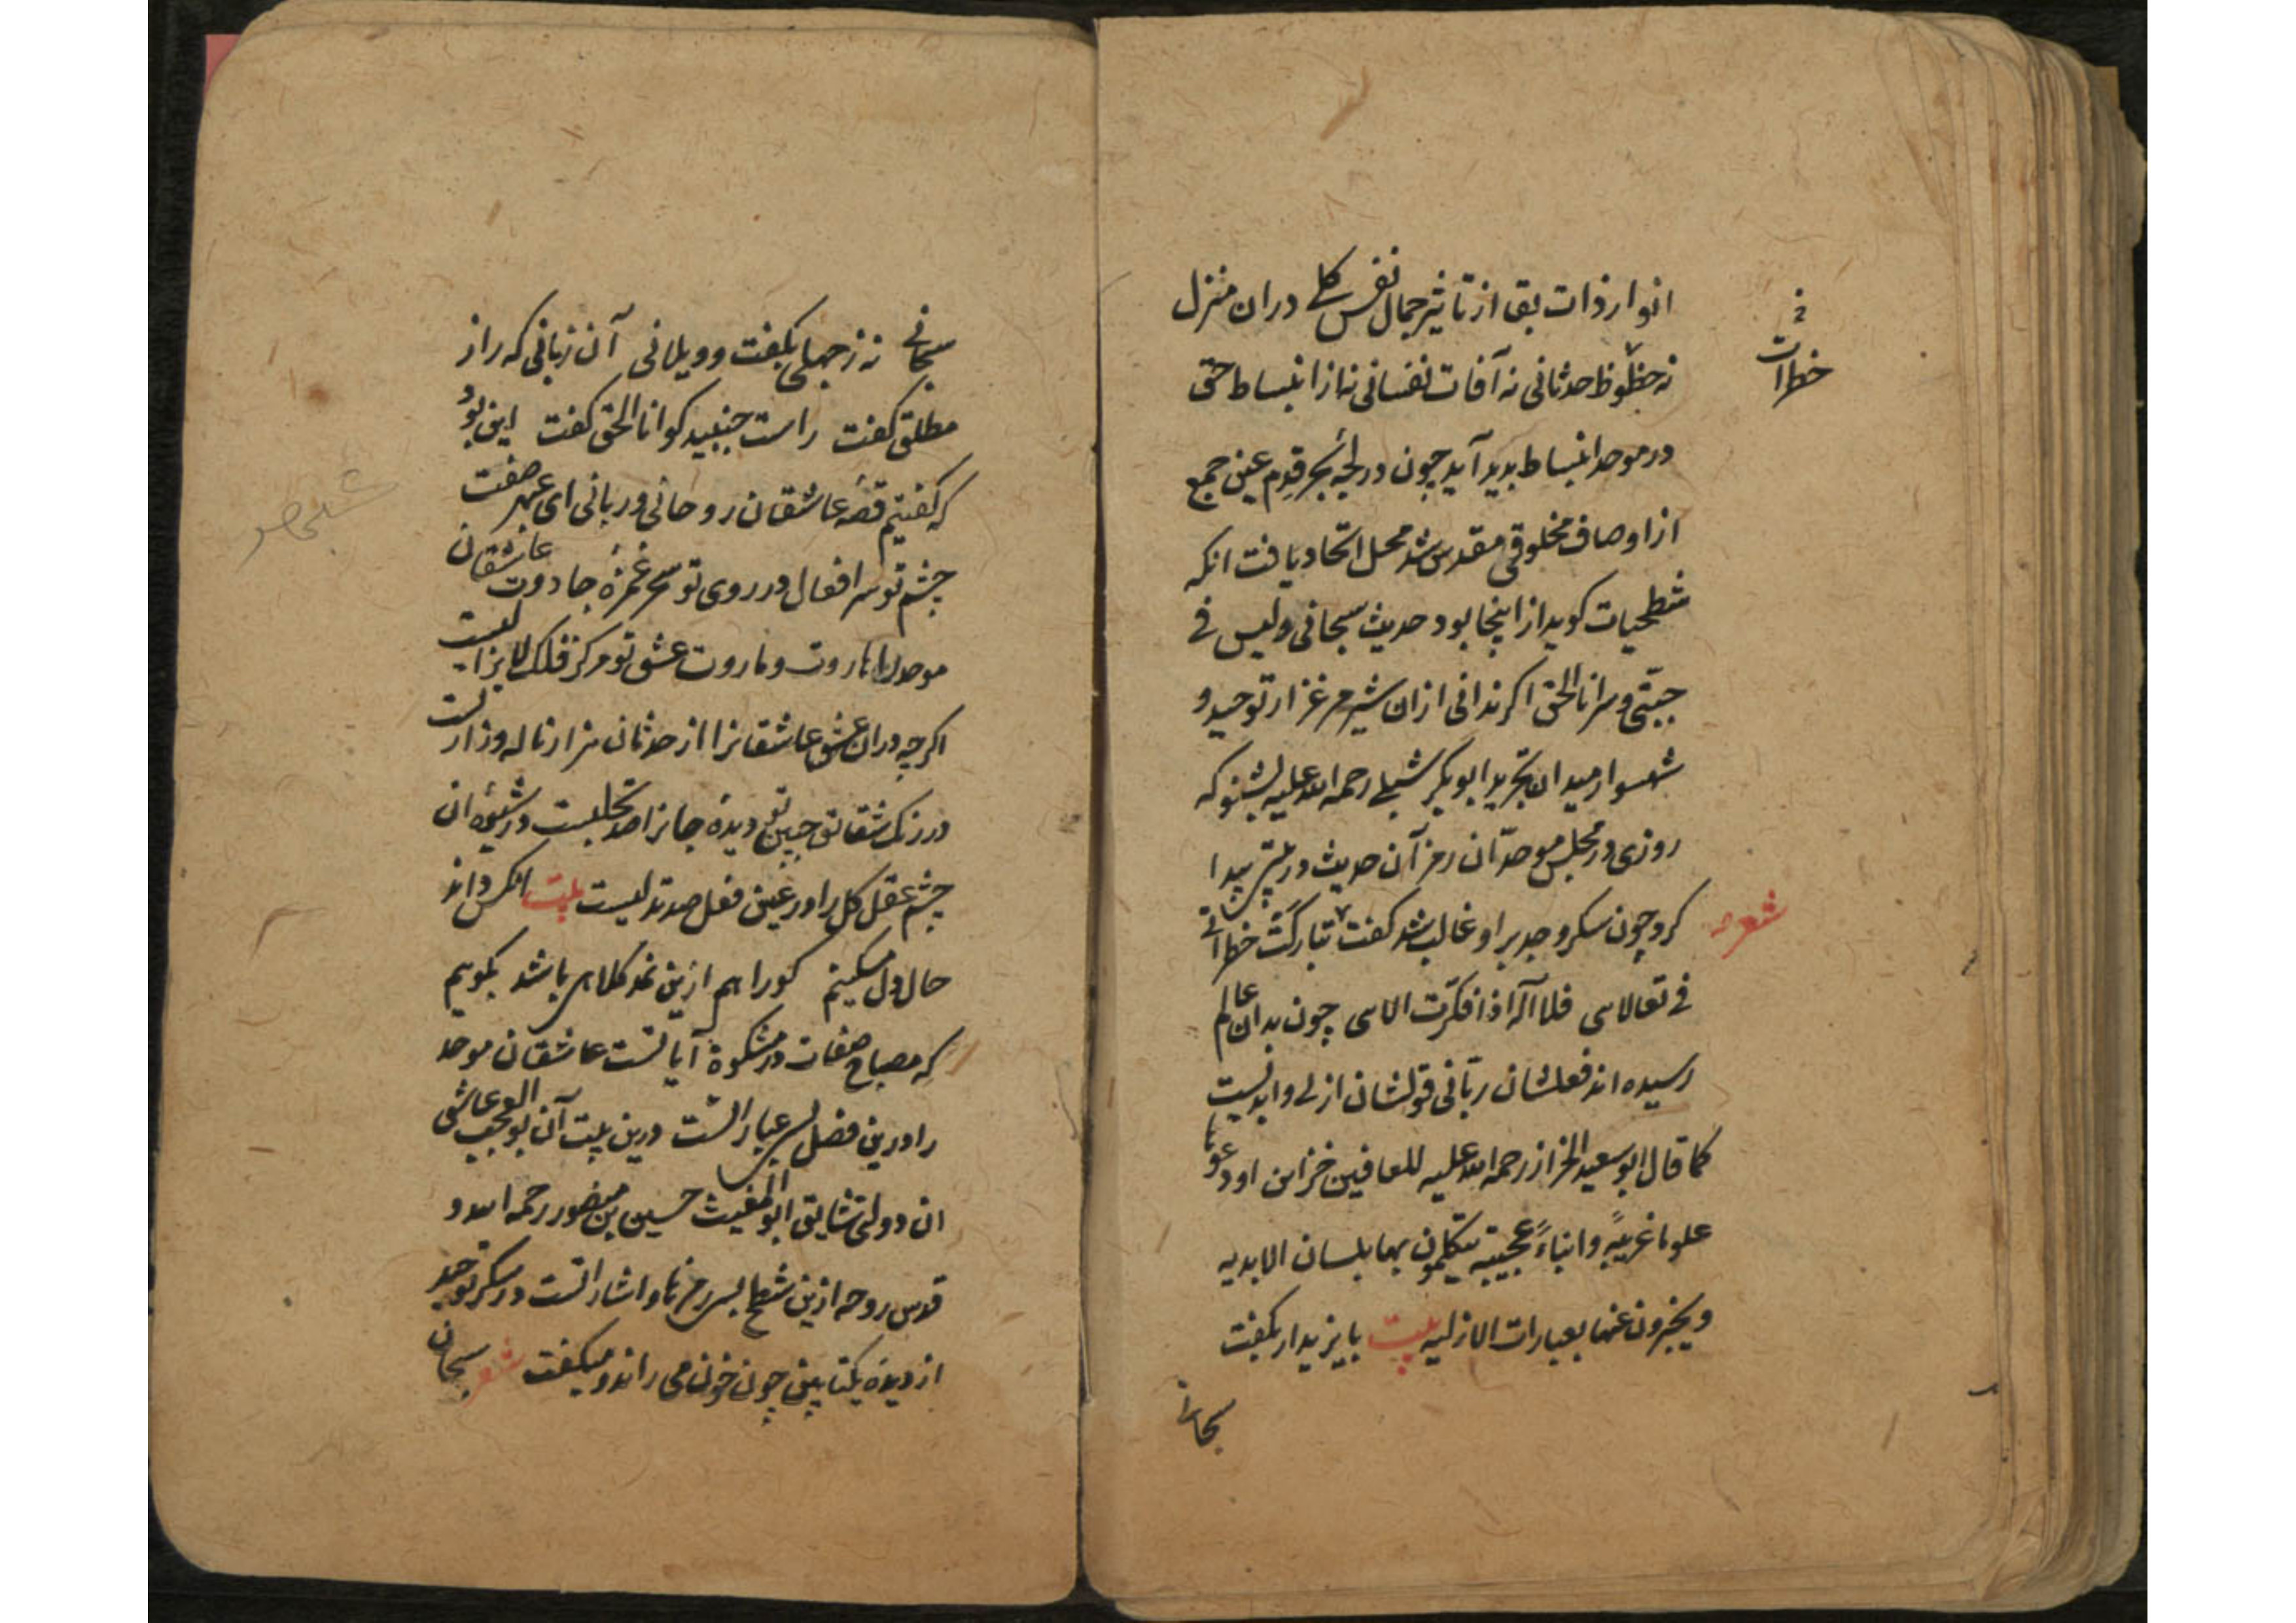 انوار ذات بقی از تاثیر جمال نفس کلی در ان منزل
نه حظوظ حدثانی نه آفات نفسانی نه از انبساط حتی
در موحد انبساط بدید آید چون در لجهٔ بحر قدم عین جمع
از اوصاف مخلوقی مقدس شد محل اتحاد یافت انکه
شطحیات کوید از اینجا بود حدیث سبحانی و لیس فی
جبّتی و سر انا الحق اکر ندانی از ان شیر مرغزار توحید و
شهسوار میدان تجرید ابو بکر شبلی رحمه الله علیه بشنو که
روزی در مجلس موحدّان رمز آن حدیث در پیدا
شعر
کرد چون سکر وجد بر او غالب شد کفت تبارکت خطراتی
فی تعالاسی فلا اله اذا فکّرت الاسی چون بدان عالم
رسیده اند فعلشان ربّانی قولشان ازلی و ابدیست
کما قال ابو سعید الخراز رحمه الله علیه للعافین خزاین اودعوها
علوما غریبهً و انباءً عجیبیته یتکلمون بها بلسان الابدیه
و یخبرون عنها بعبارات الازلیه بیت بایزید ار بکفت
سبحانی
خطرات
سبحانی نه ز جهلی بکفت و ویلمانی آن زبانی که راز
مطلق کفت راست جنبید کو انا الحق کفت این بود
که کفتیم قصهٔ عاشقان روحانی و ربانی ای عبهر صفت
چشم تو سر افعال در روی تو سحر غمزهٔ جادوت عاشقان
موحد را هاروت و ماروت عشق تو مرکز فلک
اکرچه در ان عشق عاشقانرا از حدثان هزار ناله و زاریست
در رنک شقایق جبین تو دیدهٔ جانرا صد تجلیست در شیوهٔ ان
چشم عقل کل را در عین فعل صد تدلیست بیت انکس داند
حال دل مسکینم کورا هم ازین نمد کلاهی باشد بکویم
که مصباح صفات در مشکوة آیاتست عاشقان موحد
را درین فصل بسی عباراتست درین بیت آن بو العجب عاشقی
ان دولتی شایق ابو المغیث حسین بن منصور رحمه الله و
قدس روحه ازین شطح بسر رمزها و اشاراتست در سکر توحید
از دیدهٔ یکتا بینی چون خون می راند و میکفت شعر سبحان